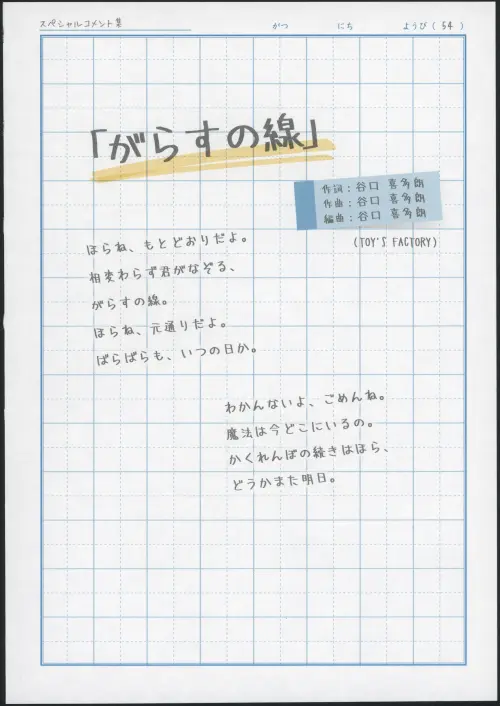 スペシャルコメント集
がつ にち ようび ( 54 )
「がらすの線」
作詞：谷口 喜多朗
作曲：谷口 喜多朗
編曲：谷口 喜多朗
(TOY'S FACTORY)
ほらね、もとどおりだよ。
相変わらず君がなぞる、
がらすの線。
ほらね、元通りだよ。
ばらばらも、いつの日か。
わかんないよ、ごめんね。
魔法は今どこにいるの。
かくれんぼの続きはほら、
どうかまた明日。